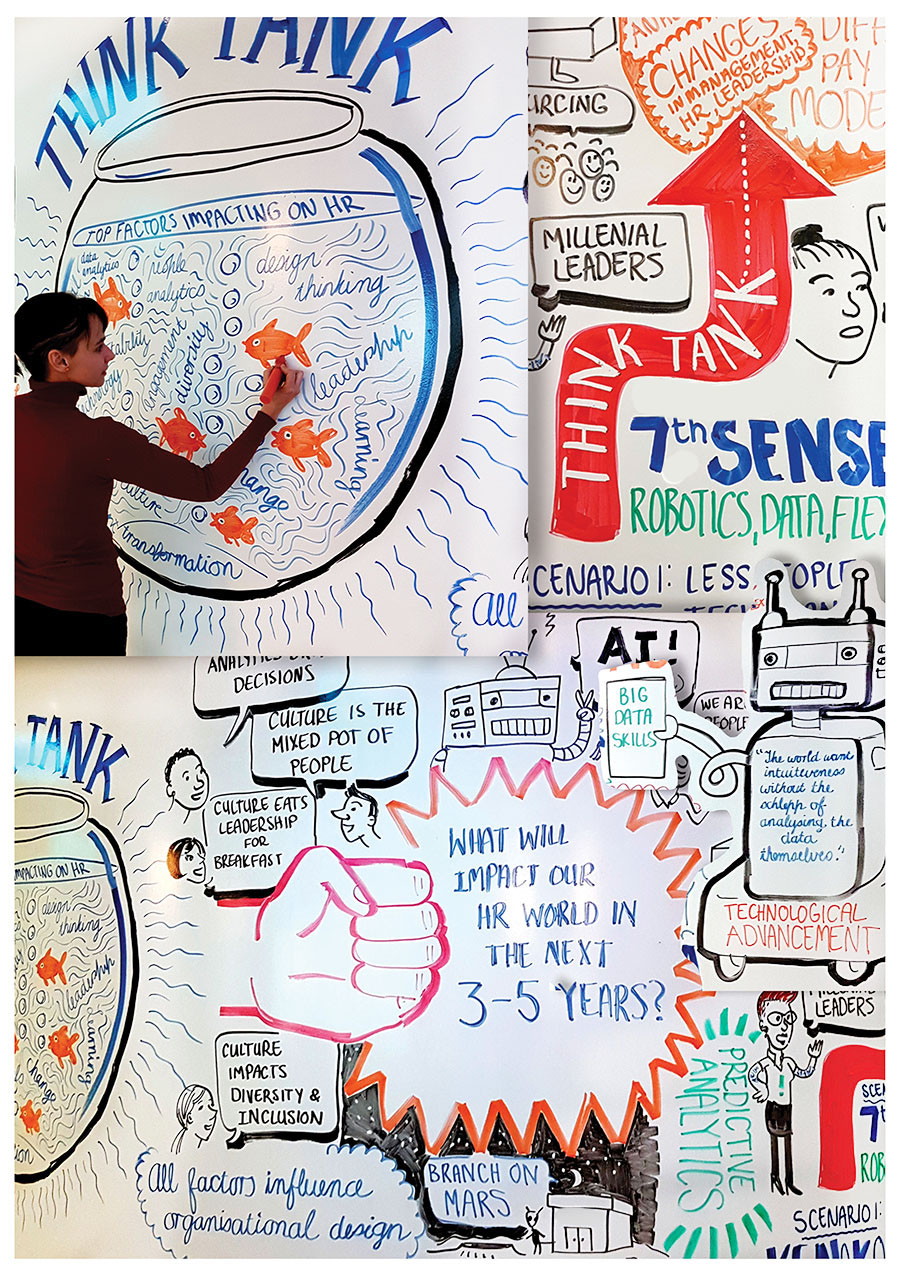 THINK TANK
TOP FACTORS IMPACTING ON HR
data
analytics
people
analytics
design
thinking
engagement
diversity
leadership
learning
change
culture
transformation
All
CHANGES
IN MANAGEMENT,
HR LEADERSHIP
PAY
MILLENIAL
LEADERS
THINK TANK
7th SENSE
ROBOTICS, DATA, FLEX
CENARIO 1: LESS PEOPLE
DECISIONS
CULTURE IS THE
MIXED POT OF
PEOPLE
CULTURE EATS
LEADERSHIP
FOR
BREAKFAST
AI!
BIG
DATA
SKILLS
WE ARE
PEOPLE
"The world want
intuitiveness
without the
schlepp of
analysing the
data
themselves."
TECHNOLOGICAL
ADVANCEMENT
TANK
IMPACTING ON HR
design
thinking
leadership
learning
change
WHAT WILL
IMPACT OUR
HR WORLD IN
THE NEXT
3-5 YEARS?
CULTURE
IMPACTS
DIVERSITY &
INCLUSION
All factors influence
organisational design
BRANCH ON
MARS
PREDICTIVE
ANALYTICS
LEADERS
7th
SCENARIO 1: